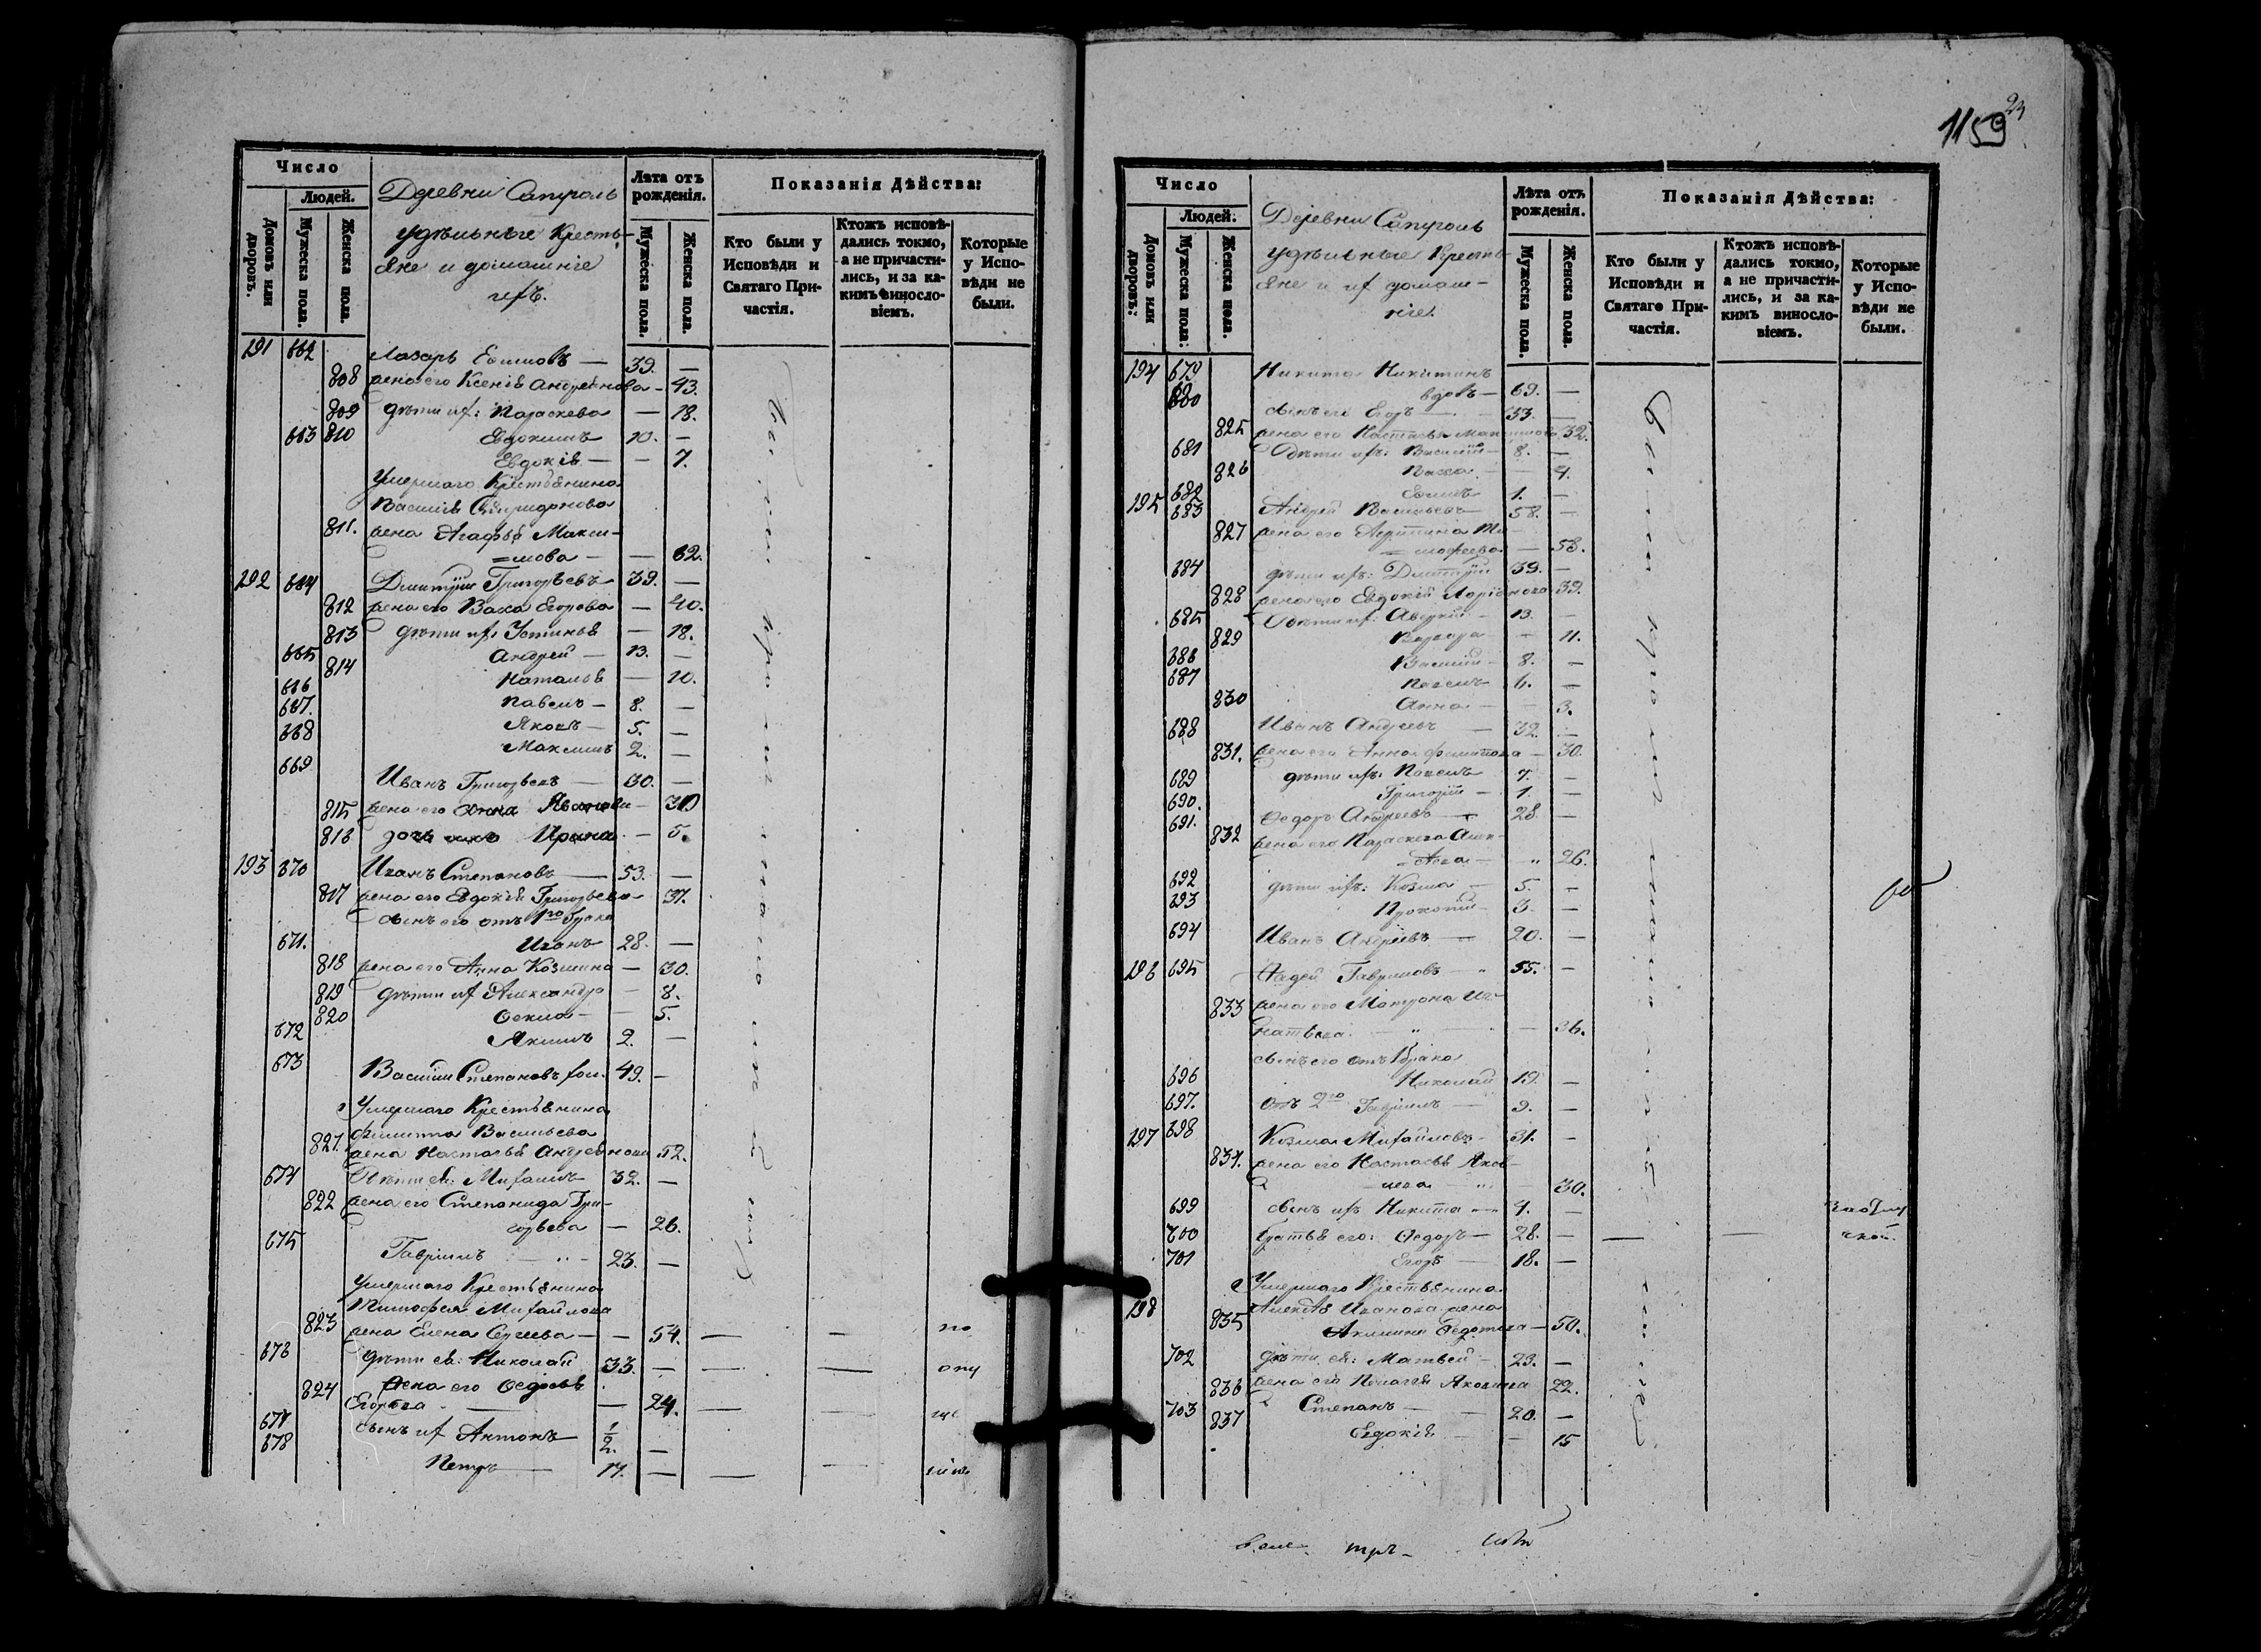 1159
Число
Людей.
Домовъ или дворовъ.
Мужеска пола.
Женска пола.
Деревни Сапроль
удѣльные Кресть-
яне и домашніе
ихъ.
Лѣта отъ рожденія.
Мужеска пола.
Женска пола.
Показанія Дѣйства:
Кто были у Исповѣди и Святаго При-частія.
Ктожъ исповѣ-дались токмо, а не причасти-лись, и за ка-кимъ винносло-віемъ.
Которые у Испо-вѣди не были.
191 662 Лазарь Ефимовъ — 39. —
808 жена его Ксенія Андреянова — 43.
809 дѣти их: Параскева — 18.
663 810 Евдокимъ 10. —
Евдокія — — 7.
Умершаго Крестьянина
Василія Спиридонова
811. жена Агафья Макси-
=мова — — 62.
192 664 Дмитрій Григорьевъ 39. —
812 жена его Васса Егорова — 40.
813 дѣти их Устинья — 18.
665 Андрей — 13. —
814 Наталья — 10.
666 Павелъ — 8. —
667. Яковъ — 5. —
668 Максимъ 2. —
669 Иванъ Григорьевъ — 30. —
815 жена его Анна — 30
816 дочь ихъ Ирина — 5.
193 670 Иванъ Степановъ — 53. —
817 жена его Евдокія Григорьева — 37.
сынъ его отъ 1го брака
671. Иванъ 28. —
818 жена его Анна Козмина — 30.
819 дѣти их Александра — 8.
820 Фекла — — 5.
672 Якимъ 2. —
673 Василій Степановъ хол. 49. —
Умершаго Крестьянина
Филиппа Васильева
821. жена Настасья Андреянова 52.
674 Дѣти ея: Михаилъ 32. —
822 жена его Степанида Гри-
горьева — 26.
675 Гавріилъ — 23. —
Умершаго Крестьянина
Тимофея Михайлова
823 жена Елена Сергеева — — 54. — —
676 дѣти ея: Николай 33. — — —
824 жена его Федосья
Егорова — — 24. — —
677 сынъ их Антонъ 1/2. —
678 Петръ — 17. — — —
Число
Людей.
Домовъ или дворовъ:
Мужеска пола:
Женска пола.
Деревни Сапроль
удѣльные Кресть-
яне и их домаш-
ніе.
Лѣта отъ рожденія.
Мужеска пола.
Женска пола.
Показанія Дѣйства:
Кто были у Исповѣди и Святаго При-частія.
Ктожъ исповѣ-дались токмо, а не причасти-лись, и за ка-кимъ винносло-віемъ.
Которые у Испо-вѣди не были.
194 679 Никита Никитинъ
вдовъ — 69. —
680 сынъ его Егоръ — 33. —
825 жена его Настасья Максимова 32.
681 Дѣти ихъ: Василій — 8. —
826 Васса — — 4.
682 Ефимъ 1. —
195 683 Андрей Васильевъ — 58. —
827 жена его Агрипина Ти-
=мофеева — 58.
684 дѣти ихъ: Дмитрій 39. —
828 жена его Евдокія 39.
685 Дѣти их: Аверкій — 13. —
829 Варвара — 11.
686 Василій — 8. —
687 Павелъ — 6. —
830 Анна — — 3.
688 Иванъ Андреевъ — 32. —
831. жена его Анна Филипова — 30.
689 дѣти ихъ: Павелъ 4. —
690. Григорій — 1. —
691. Федоръ Андреевъ — 28. —
832 жена его Параскева Алек-
=сѣева — 26.
692 дѣти ихъ: Козма — 5. —
693 Прокопій — 3. —
694 Иванъ Андреевъ — 20. —
196 695 Фадей Гавриловъ — 55. —
833 жена его Матрона Иг-
натьева — 36.
сынъ его отъ 1 брака
696 Николай 19. —
697. отъ 2го Гавріилъ — 9. —
197 698 Козма Михайловъ — 31. —
834. жена его Настасья Яков-
лева — — 30.
699 сынъ ихъ Никита — 4. —
700 братья его: Федоръ — 28. — — —
701 Егоръ — 18. —
Умершаго Крестьянина
198 Алексѣя Иванова жена
835 Акилина Федотова — 50.
702 дѣти ея: Матвей — 23. —
836 жена его Пелагея Яковлева 22.
703 Степанъ — 20. —
837 Евдокія — — 15